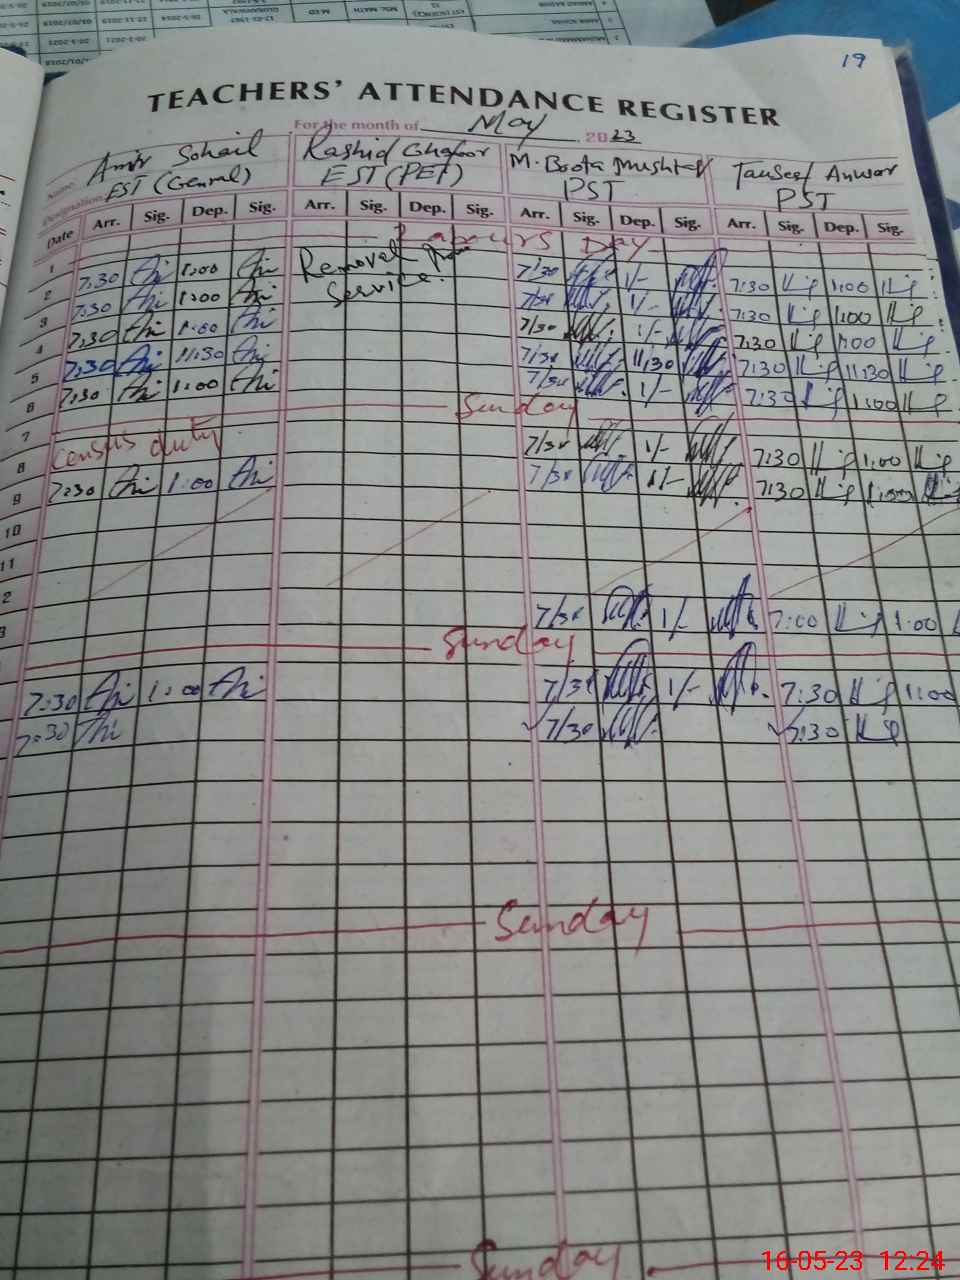 19
TEACHERS' ATTENDANCE REGISTER
For the month of May 2023
Name Amir Sohail Rashid Ghafoor M. Boota Mushtaq Tauseef Anwar
Designation EST (General) EST (PET) PST PST
Date Arr. Sig. Dep. Sig. Arr. Sig. Dep. Sig. Arr. Sig. Dep. Sig. Arr. Sig. Dep. Sig.
1 Labour's Day
2 7:30 1:00 Removal from 7/30 1/- 7:30 1:00
3 7:30 1:00 Service. 7/30 1/- 7:30 1:00
4 7:30 1:00 7/30 1/- 7:30 1:00
5 7:30 11:30 7/30 11/30 7:30 11:30
6 7:30 1:00 7/30 1/- 7:30 1:00
7 Sunday
8 Census duty 7/30 1/- 7:30 1:00
9 7:30 1:00 7/30 1/- 7:30 1:00
10
11
2
3 7/30 1/- 7:00 1:00
Sunday
7:30 1:00 7/30 1/- 7:30 1:00
7:30 7/30 7:30
Sunday
Sunday
16-05-23 12:24